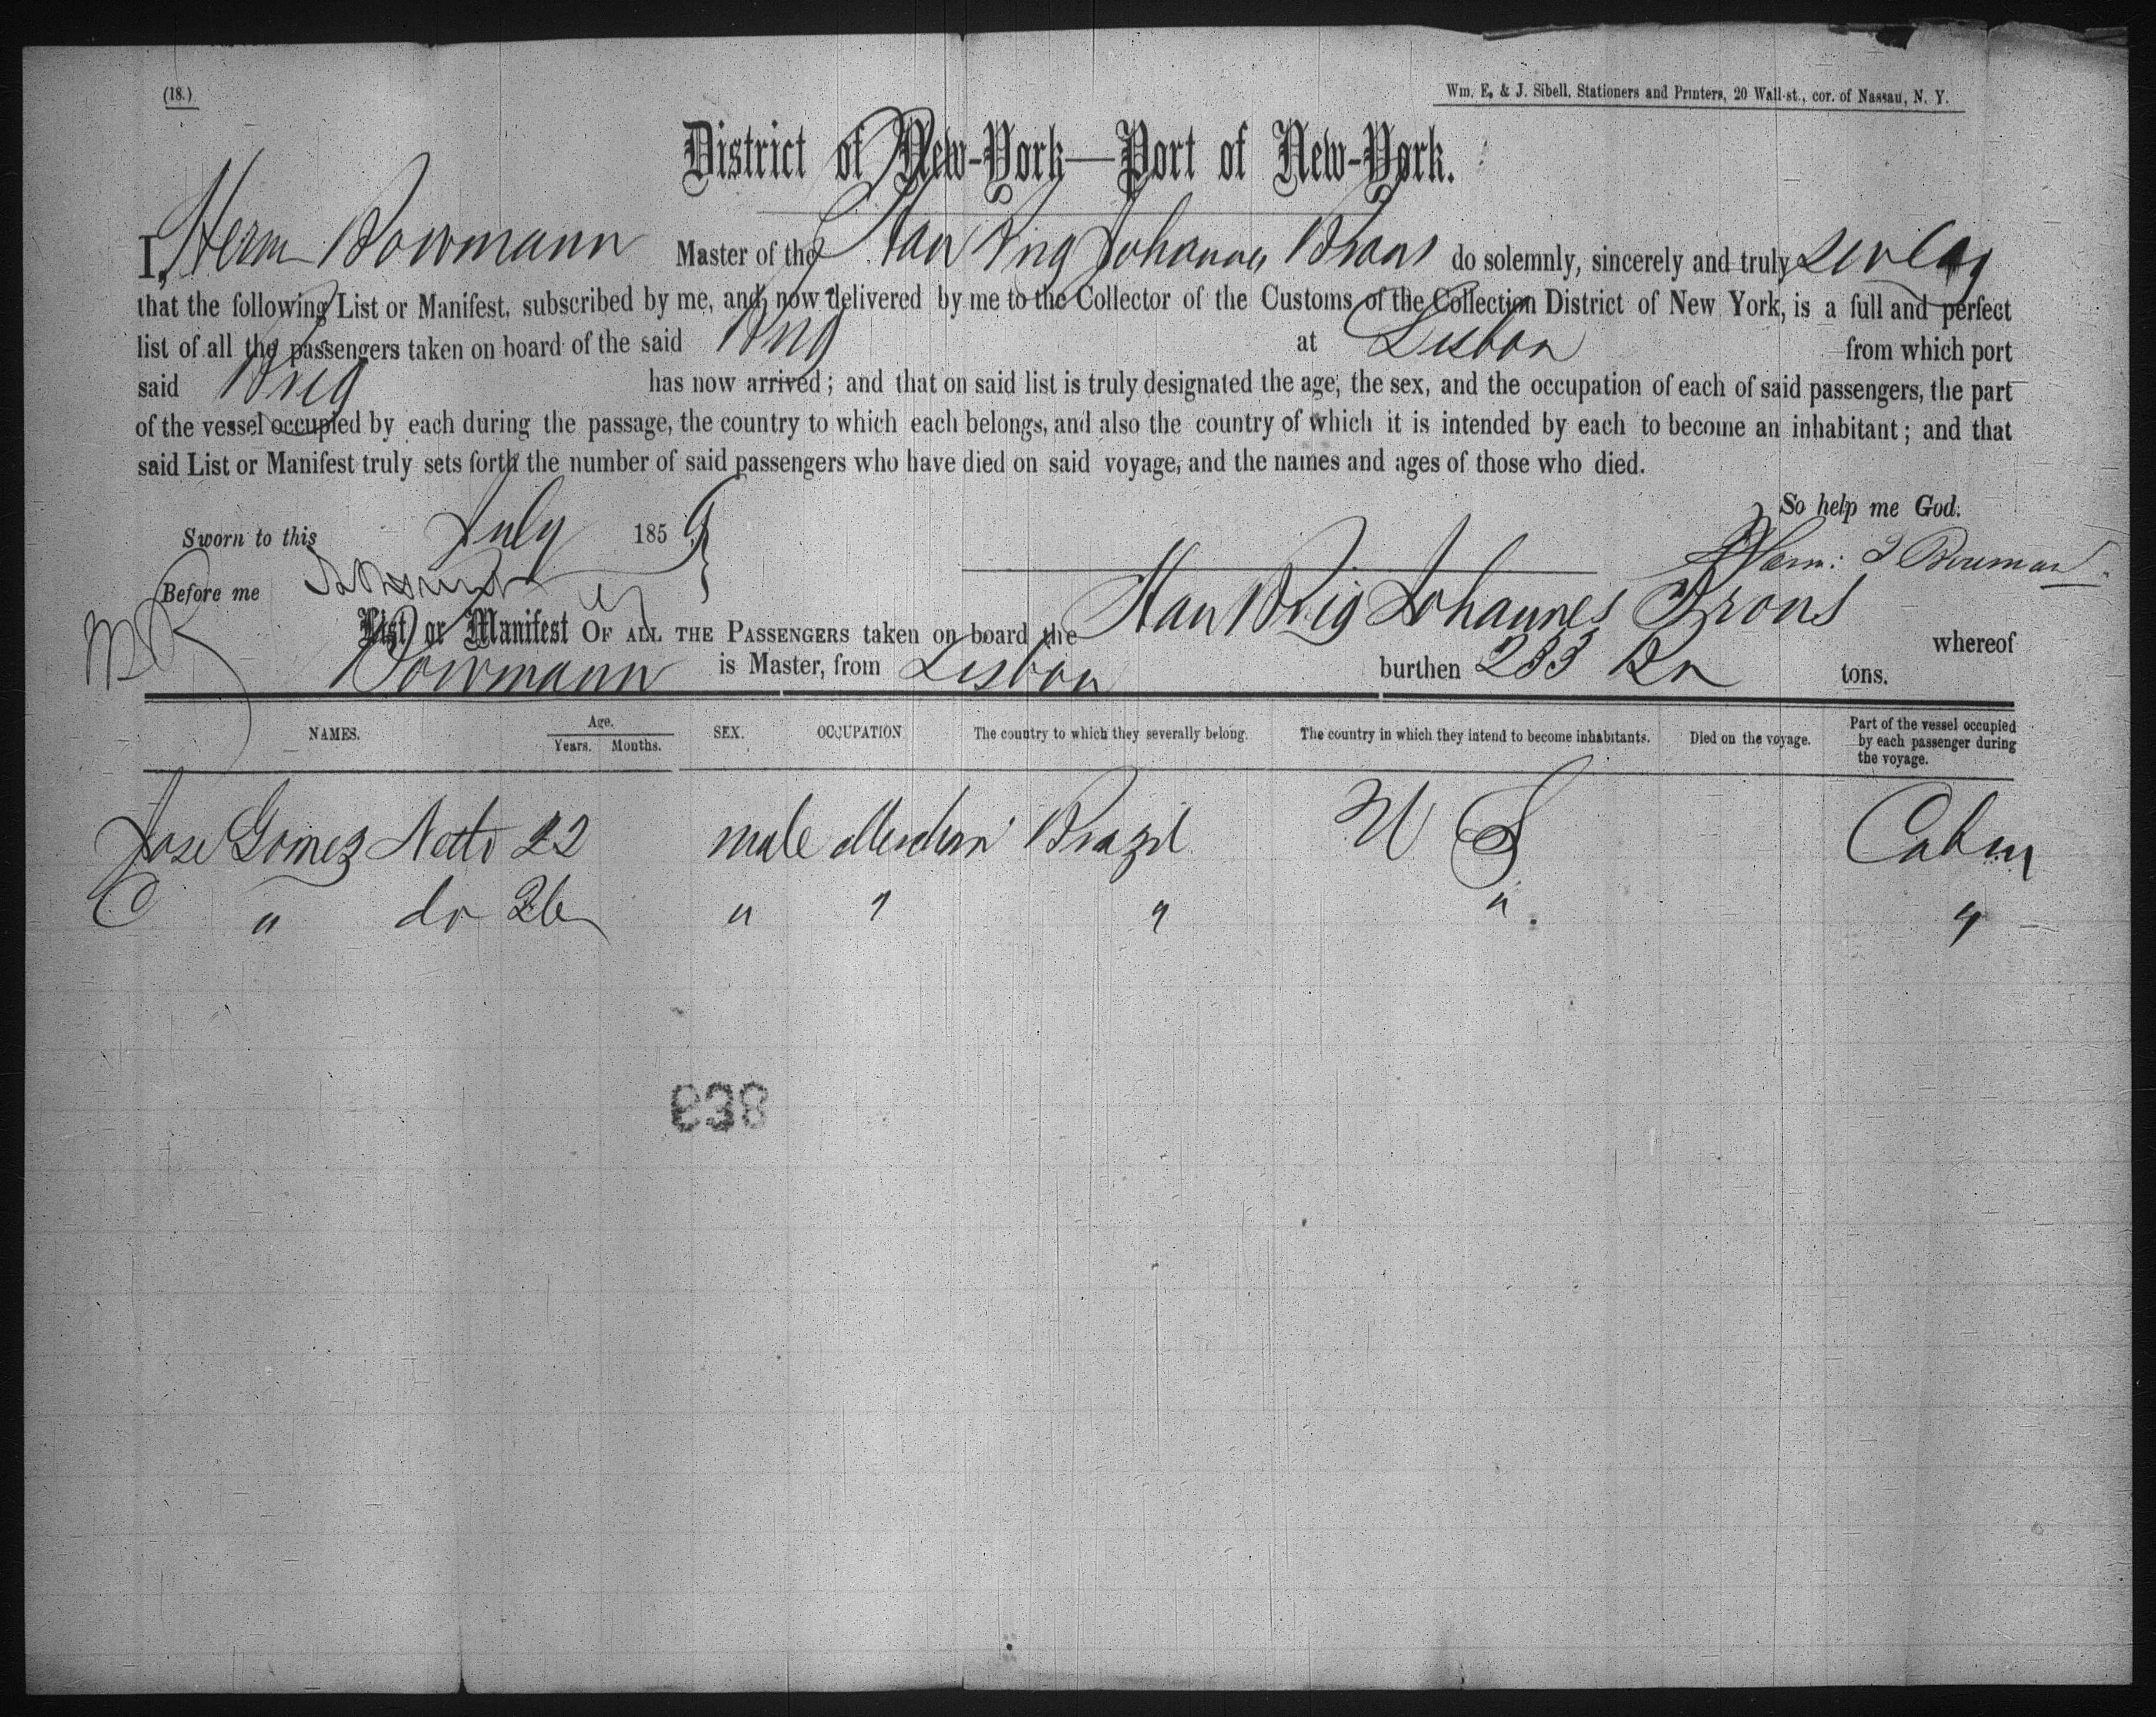 (18.)
Wm. E. & J. Sibell, Stationers and Printers, 20 Wall-st., cor. of Nassau, N. Y.
District of New-York—Port of New-York.
I, Herm Bowmann Master of the Han Brig Johannes Brons do solemnly, sincerely and truly swear
that the following List or Manifest, subscribed by me, and now delivered by me to the Collector of the Customs of the Collection District of New York, is a full and perfect
list of all the passengers taken on board of the said Brig at Lisbon from which port
said Brig has now arrived; and that on said list is truly designated the age, the sex, and the occupation of each of said passengers, the part
of the vessel occupied by each during the passage, the country to which each belongs, and also the country of which it is intended by each to become an inhabitant; and that
said List or Manifest truly sets forth the number of said passengers who have died on said voyage, and the names and ages of those who died.
So help me God.
Sworn to this July 1859
Before me
List or Manifest OF ALL THE PASSENGERS taken on board the Han Brig Johannes Brons whereof
Bowmann is Master, from Lisbon burthen 233 tons.
NAMES. Age. Years. Months. SEX. OCCUPATION The country to which they severally belong. The country in which they intend to become inhabitants. Died on the voyage. Part of the vessel occupied by each passenger during the voyage.
Jose Gomez Netto 22 male Merchan Brazil U S Cabin
C " do 26 " " " " "
838